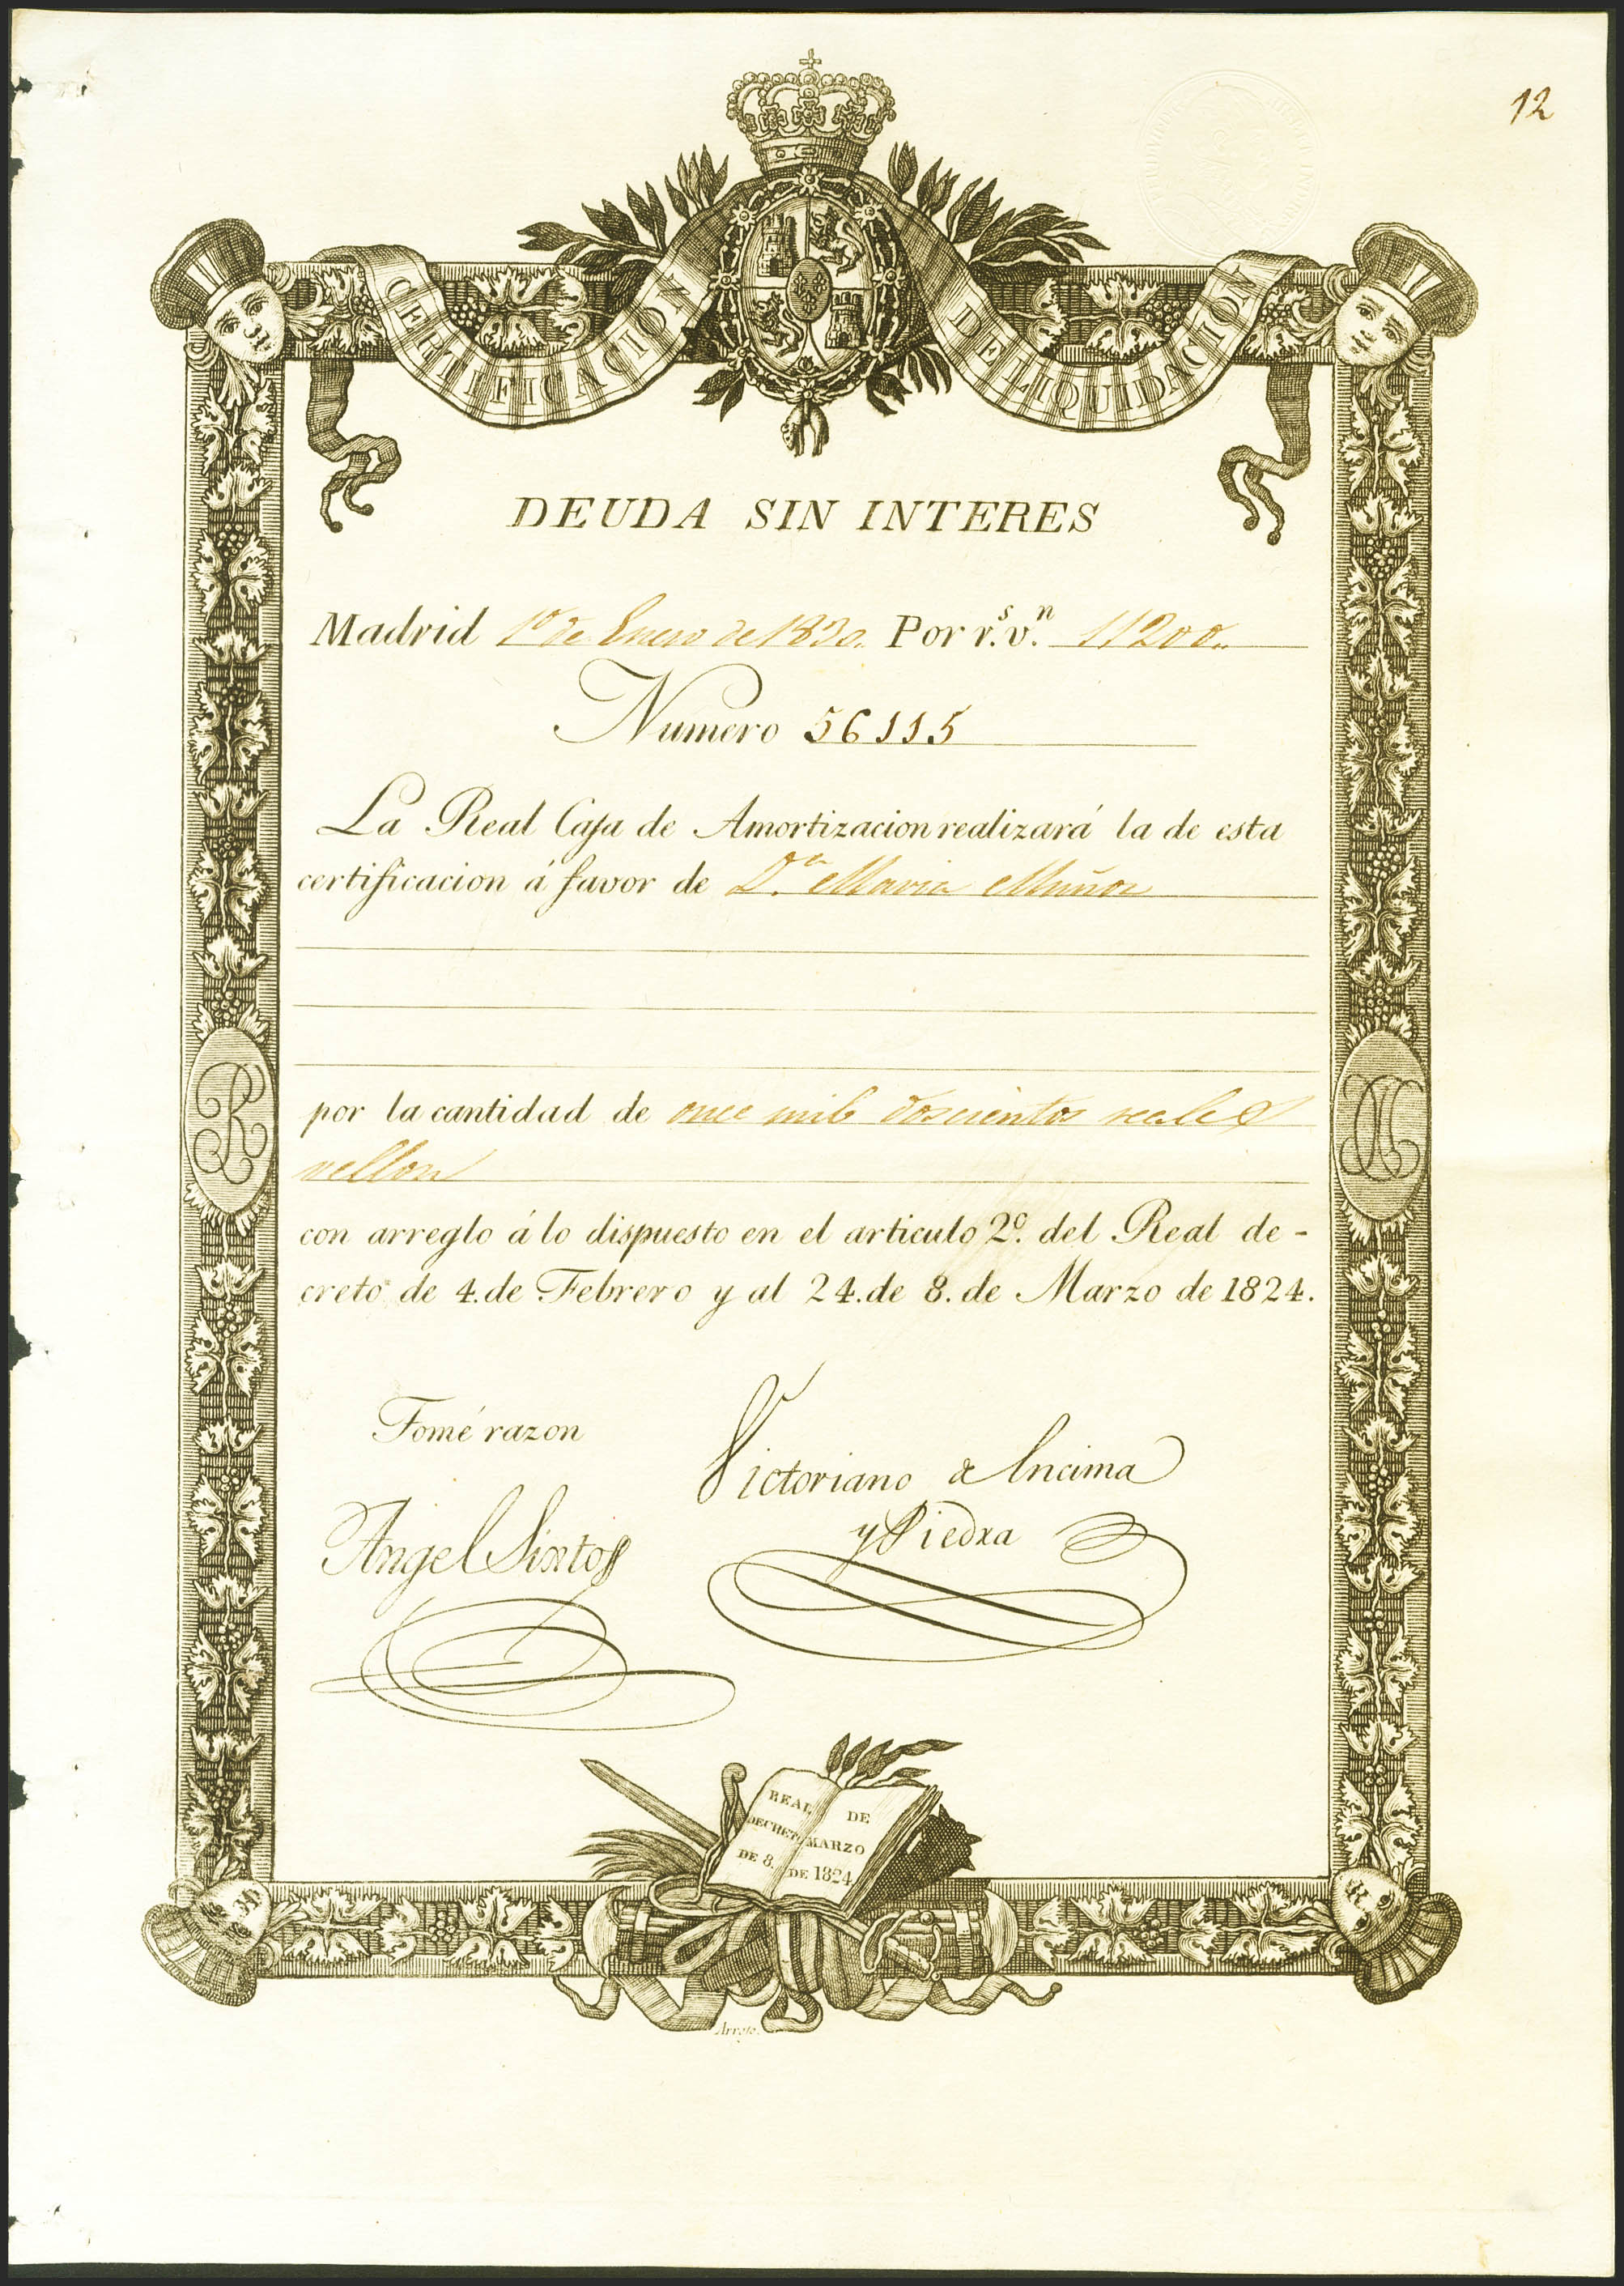 12
CERTIFICACION DE LIQUIDACION
DEUDA SIN INTERES
Madrid 1º de Enero de 1830. Por r.ˢ v.ⁿ 11200..
Numero 56115
La Real Caja de Amortizacion realizará la de esta
certificacion á favor de D.ª Maria Muñoz
por la cantidad de once mil doscientos reales
vellon
con arreglo á lo dispuesto en el articulo 2º. del Real de-
creto de 4. de Febrero y al 24. de 8. de Marzo de 1824.
Tomé razon
Victoriano de Encima
y Piedra
Angel Sixtos
REAL DECRETO DE 8. DE MARZO DE 1824
Arroyo.